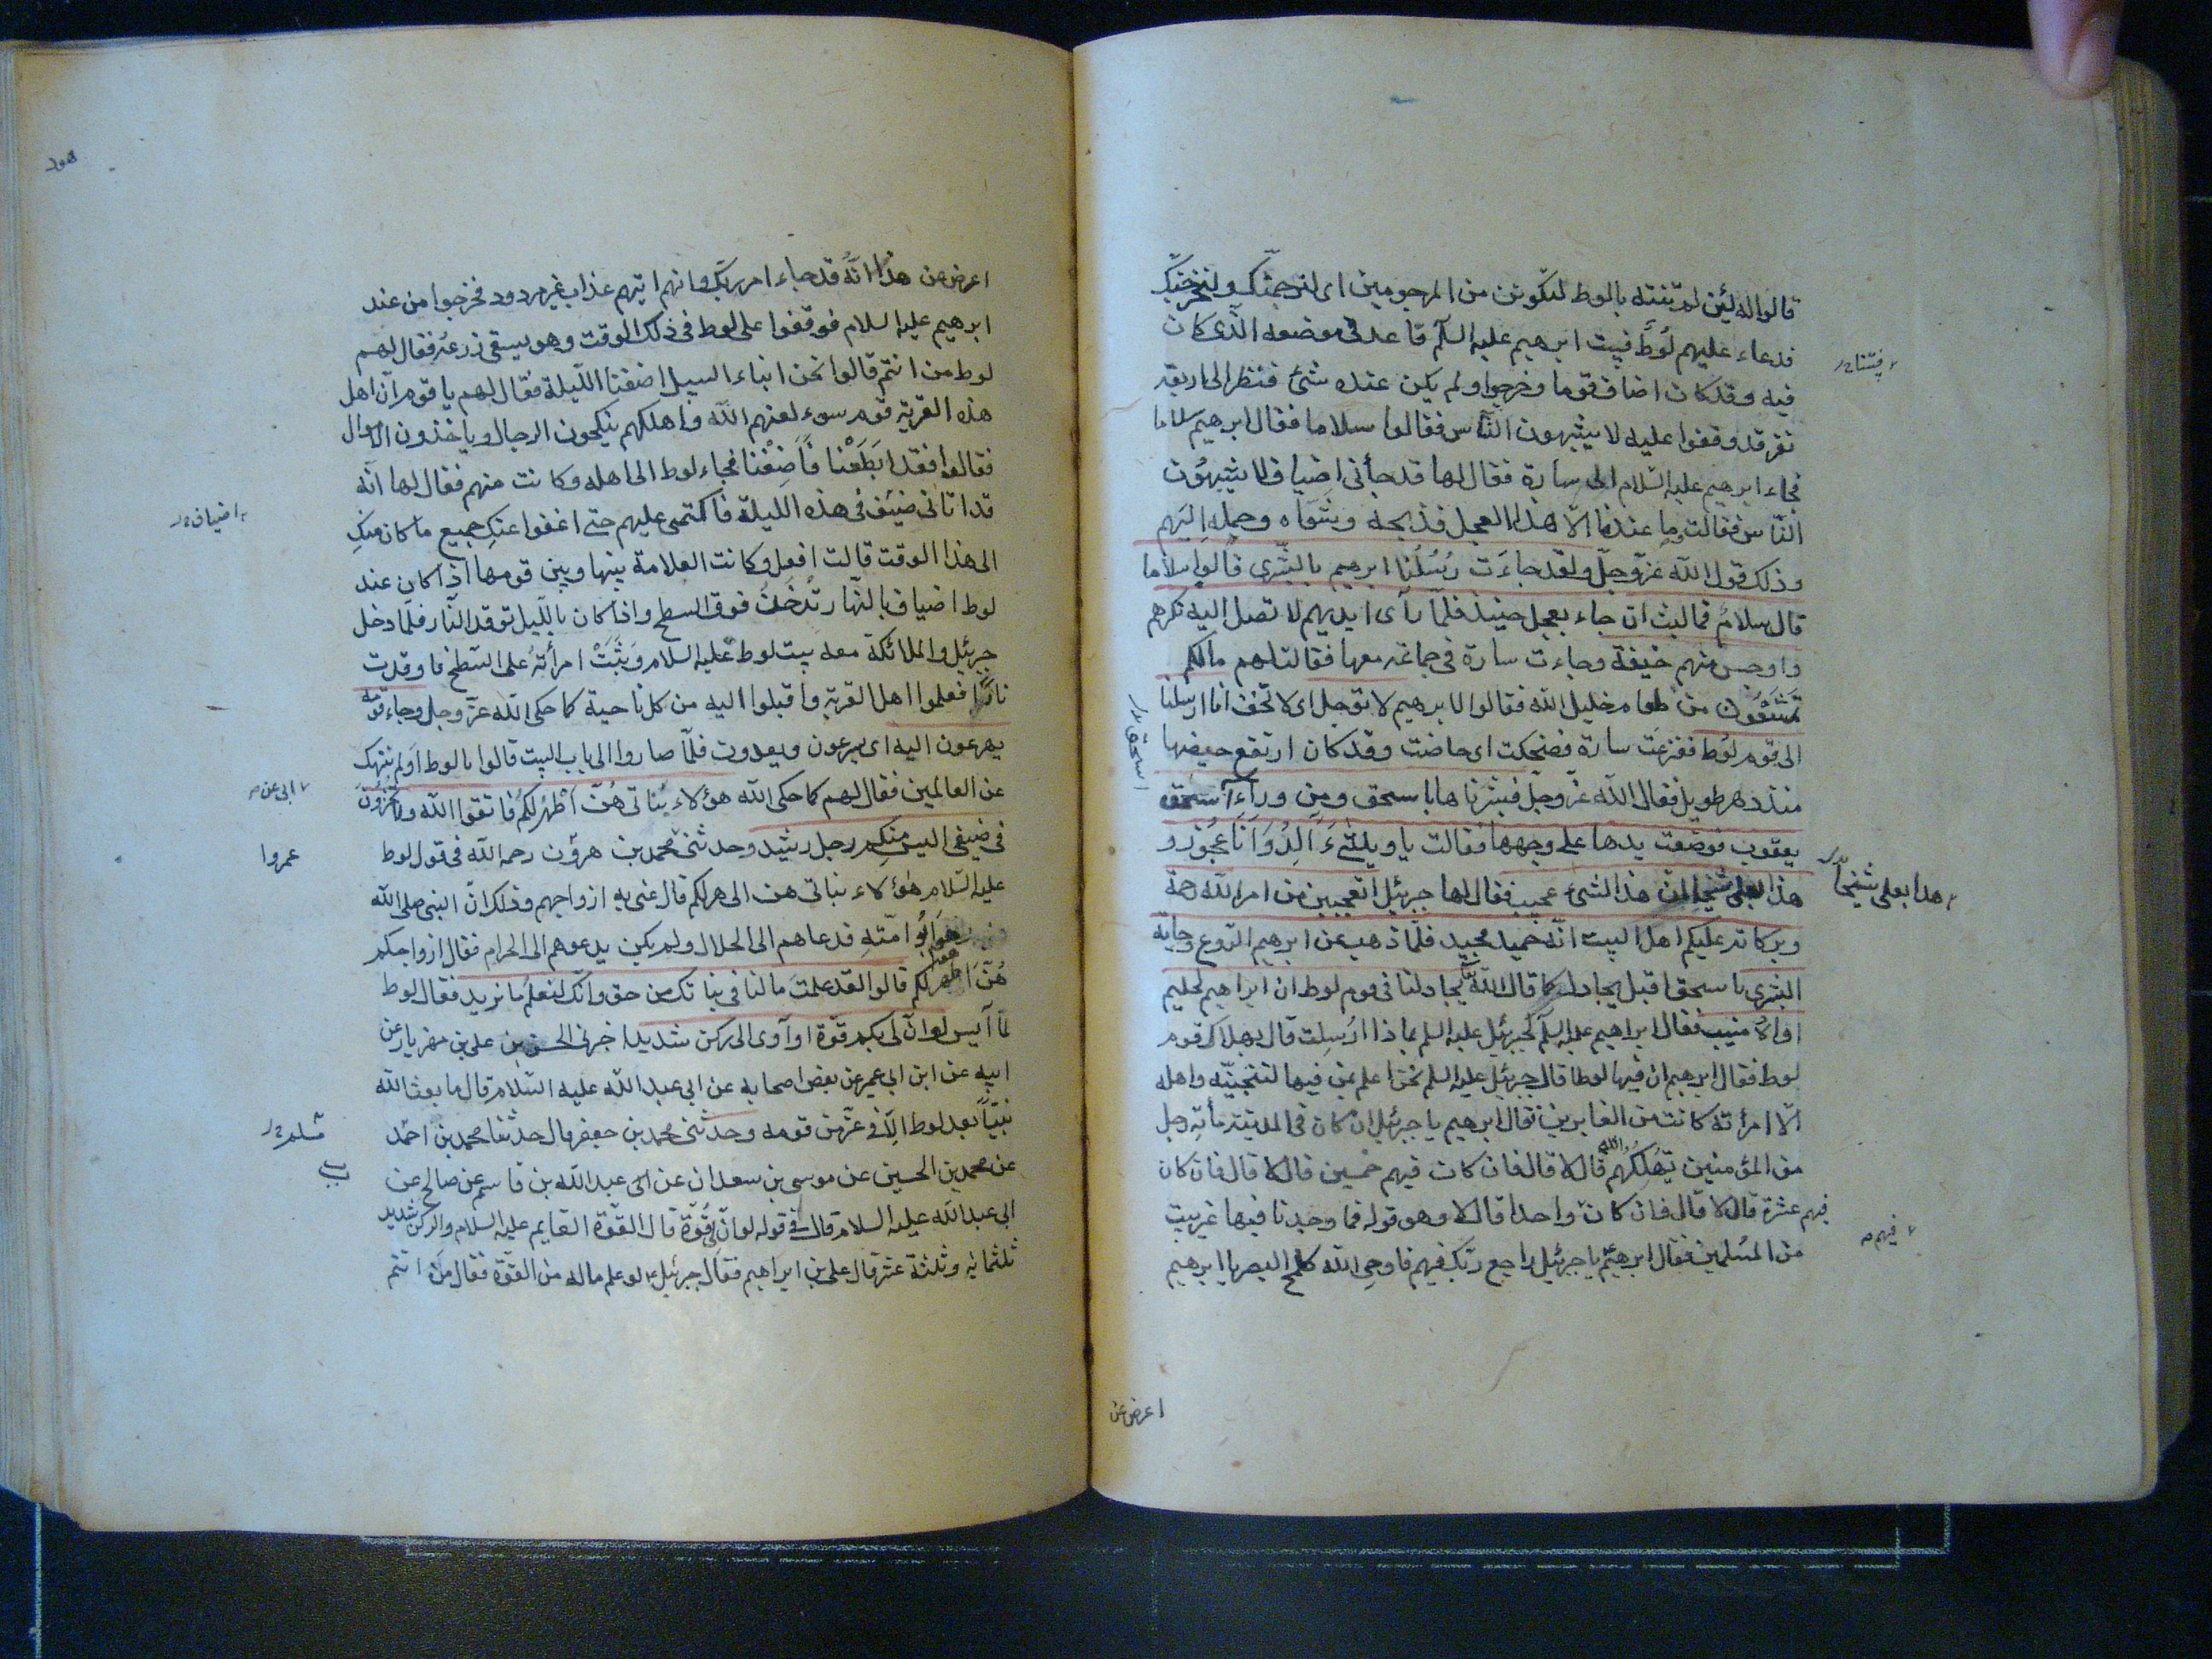 قالوا له لئن لم تنته يا لوط لتكونن من المرجومين اى لنرجمنّك ولنخرجنّك
فدعاء عليهم لُوط فبيت ابرهيم عليه السلم قاعد فى موضعه الذى كان
فيه وقد كان اضاف قوما وخرجوا ولم يكن عنده شئ فنظر الى اربعة
نفر قد وقفوا عليه لا يشبهون النّاس فقالوا سلاما فقال ابرهيم سلاما
فجاء ابرهيم عليه السّلام الى سارة فقال لها قد جأنى اضياف لا يشبهُون
النّاس فقالت ما عندنا الّا هذا العجل فذبحه وشواه وحمله اليهم
وذلك قول الله عزّوجلّ ولقد جاءَت رُسُلُنا ابرهيم بالبشرى قالوا سلاما
قال سلام فما لبث ان جاء بعجل حنيذ فلمّا رآى ايديهم لا تصل اليه نكرهم
واوجس منهم خيفة وجاءت سارة فى جماعة معها فقالت لهم مالكم
تمتنعون من طعام خليل الله فقالوا لابرهيم لا توجل اى لا تخف انا ارسلنا
الى قوم لوط ففزعت سارة فضحكت اى حاضت وقد كان ارتفع حيضها
اسحق
منذ دهر طويل فقال الله عزّ وجلّ فبشرناها باسحق ومن وراء اسحق
يعقوب فوضعت يدها على وجهها فقالت يا ويلتى ءَاَلِدُ وَاَنَا عجُوز و
هذا بعلى شيخا انّ هذا الشئ عجيب فقال لها جبرئيل اتعجبين من امر الله رحمة
هذا بعلى شيخا
وبركاته عليكم اهل البيت انّه حميد مجيد فلمّا ذهب عن ابرهيم الروع وجاءته
البشرى باسحق اقبل يجادل كما قال الله يجادلنا فى قوم لوط ان ابراهيم لحليم
اواه منيب فقال ابراهيم عليه السلم لجبرئيل عليه السلم بماذا ارسلت قال بهلاك قوم
لوط فقال ابرهيم ان فيها لوطا قال جبرئيل عليه السلم نحن اعلم بمن فيها لننجينّه واهله
الّا امرأته كانت من الغابرين فقال ابرهيم يا جبرئيل ان كان فى المدينة مأته رجل
من المؤمنين يهلكهم الله قال لا قال فان كان فيهم خمسين قال لا قال فان كان
فيهم عشرة قال لا قال فان كان واحدا قال لا وهو قوله فما وجدنا فيها غير بيت
فيهم
من المسلمين فقال ابرهيم يا جبرئيل راجع ربّك فيهم فاوحى الله كلمح البصر يا ابرهيم
اعرض عن
هود
اعرض عن هذا انّه قد جاء امر ربّك وانهم اتيهم عذاب غير مردود فخرجوا من عند
ابرهيم عليه السلام فوقفوا على لوط فى ذلك الوقت وهو يسقى زرعه فقال لهم
لوط من انتم قالوا نحن ابناء السبيل اضفنا اللّيلة فقال لهم يا قوم ان اهل
هذه القرية قوم سوء لعنهم الله واهلكهم ينكحون الرجال ويأخذون الاموال
فقالوا فقد ابطَعْنا فَاَضِفْنا فجاء لوط الى اهله وكانت منهم فقال لها انّه
قد اتانى ضيف فى هذه الليلة فاكتمى عليهم حتى اعفوا عنك جميع ما كان منك
اضياف
الى هذا الوقت قالت افعل وكانت العلامة بينها وبين قومها اذا كان عند
لوط اضياف بالنّهار تُدَخِّنُ فوق السطح واذا كان باللّيل توقد النّار فلمّا دخل
جبرئيل والملائكة معه بيت لوط عليه السلام وثبت امرأته على السّطح فاوقدت
نارًا فعلموا اهل القرية واقبلوا اليه من كل ناحية كما حكى الله عزّ وجل وجاء قومه
يهرعون اليه اى يسرعون ويعدون فلمّا صاروا الى باب البيت قالوا يا لوط اولم ننهك
عن العالمين فقال لهم كما حكى الله هؤلاء بناتى هُنّ اَطْهَرُ لكم فاتقوا الله ولا تخزون
فى ضيفى اليس منكم رجل رشيد وحدثنى محمد بن هرون رحمه الله فى قول لوط
عمروا
عليه السّلام هؤلاء بناتى هن اطهر لكم قال عنى به ازواجهم وذلك انّ النبى صلى الله
هو ابُو امّتِه فدعاهم الى الحلال ولم يكن يدعوهم الى الحرام فقال ازواجكم
هُنّ اطهر لكم قالوا لقد علمت مالنا فى بناتك من حق وانّك لتعلمُ ما نريد فقال لوط
لمّا ايس لو انّ لى بكم قوّة او آوى الى ركن شديد اخبرنى الحسن بن على بن مهزيار عن
ابيه عن ابن ابى عمير عن بعض اصحابه عن ابى عبد الله عليه السّلام قال ما بعث الله
نبيّاً بعد لوط الّا فى عزّ من قومه وحدثنى محمد بن جعفر قال حدثنا محمد بن احمد
عن محمد بن الحسين عن موسى بن سعدان عن ابى عبد الله بن قاسم عن صالح عن
ابى عبد الله عليه السلام قال فى قوله لو انّ لى قُوّة قال القوّة القايم عليه السلام والركن شديد
ثلثمائه وثلثة عشر قال على بن ابراهيم فقال جبرئيل لو علم ماله من القوّة فقال من انتم